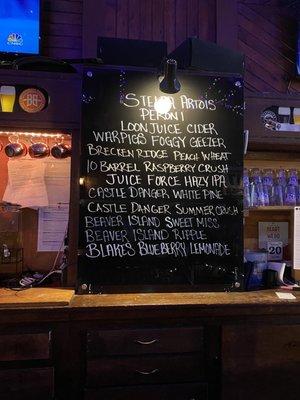 STELLA ARTOIS
PERONI
LOON JUICE CIDER
WARPIGS FOGGY GEEZER
BRECKENRIDGE PEACH WHEAT
10 BARREL RASPBERRY CRUSH
JUICE FORCE HAZY IPA
CASTLE DANGER WHITE
CASTLE DANGER SUMMER CRUSH
BEAVER ISLAND SWEET MISS
BEAVER ISLAND RIPPLE
BLAKES BLUEBERRY LEMONADE
CNBC
20